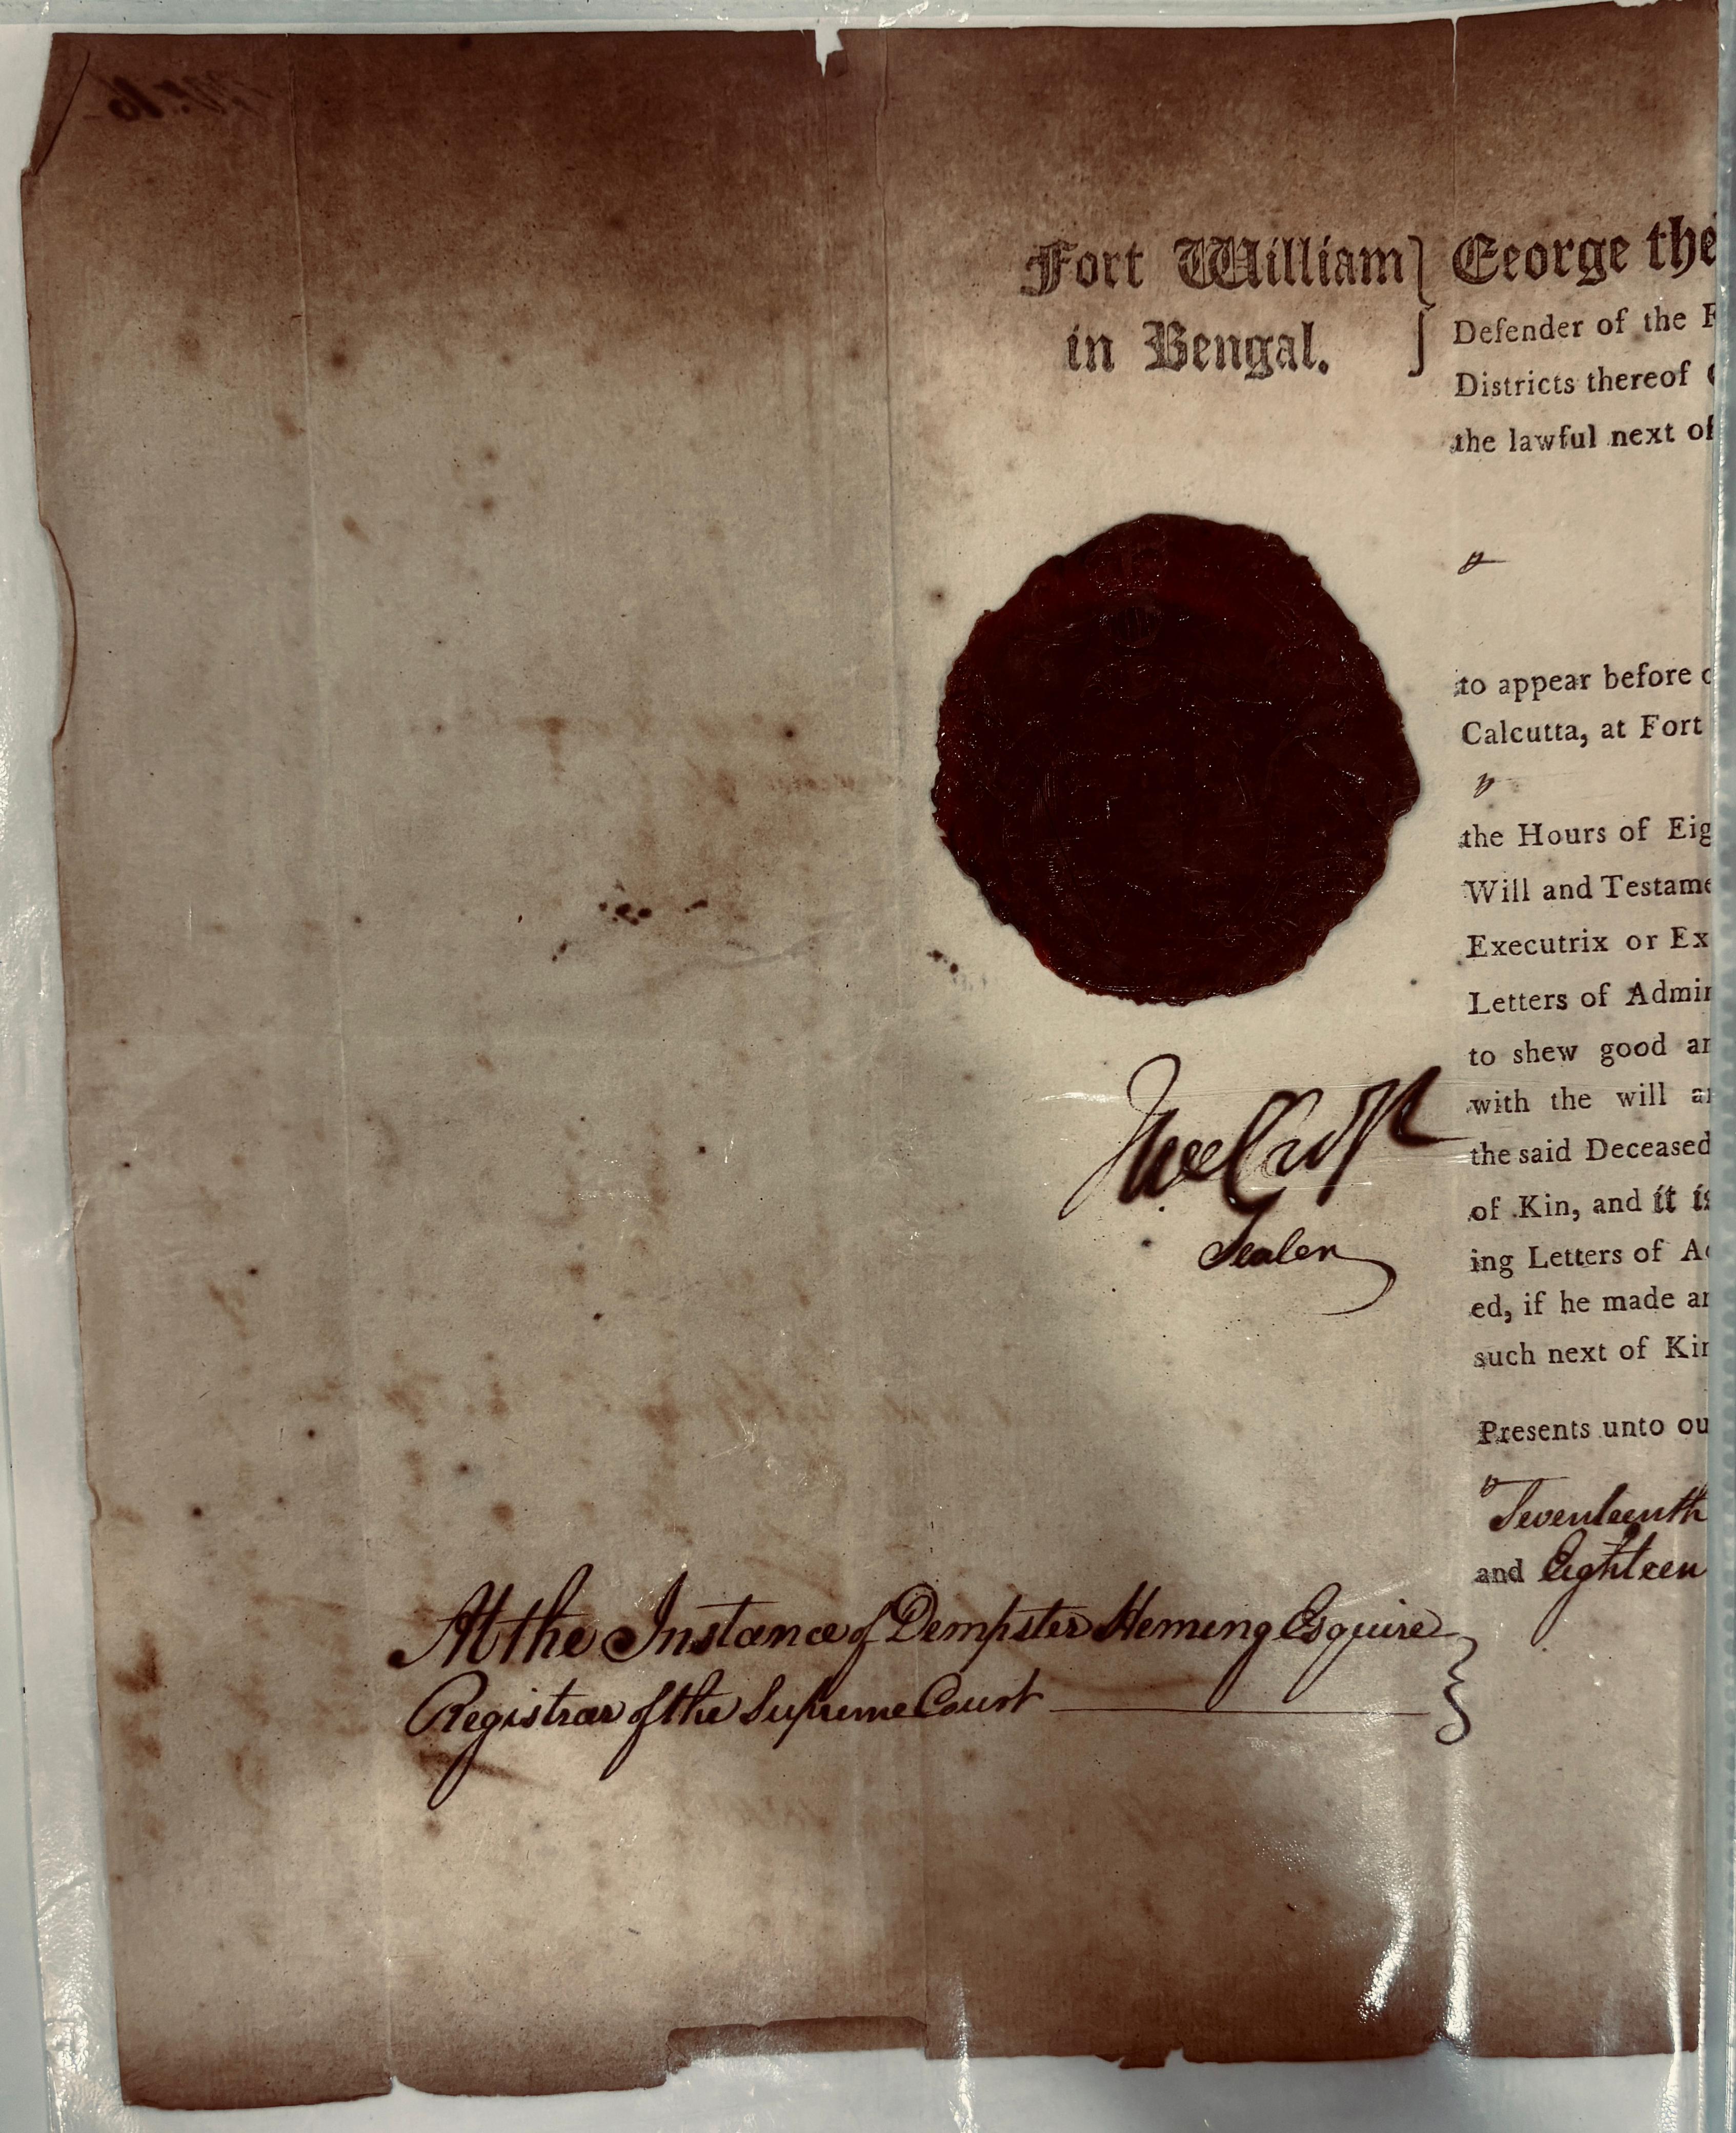 Fort William
in Bengal.
George the
Defender of the F
Districts thereof
the lawful next of
to appear before
Calcutta, at Fort
the Hours of Eig
Will and Testame
Executrix or Ex
Letters of Admin
to shew good an
with the will an
the said Deceased
of Kin, and it is
ing Letters of Ad
ed, if he made an
such next of Kin
Presents unto ou
Seventeenth
and Eighteen
Sealer
At the Instance of Dempster Heming Esquire
Registrar of the Supreme Court